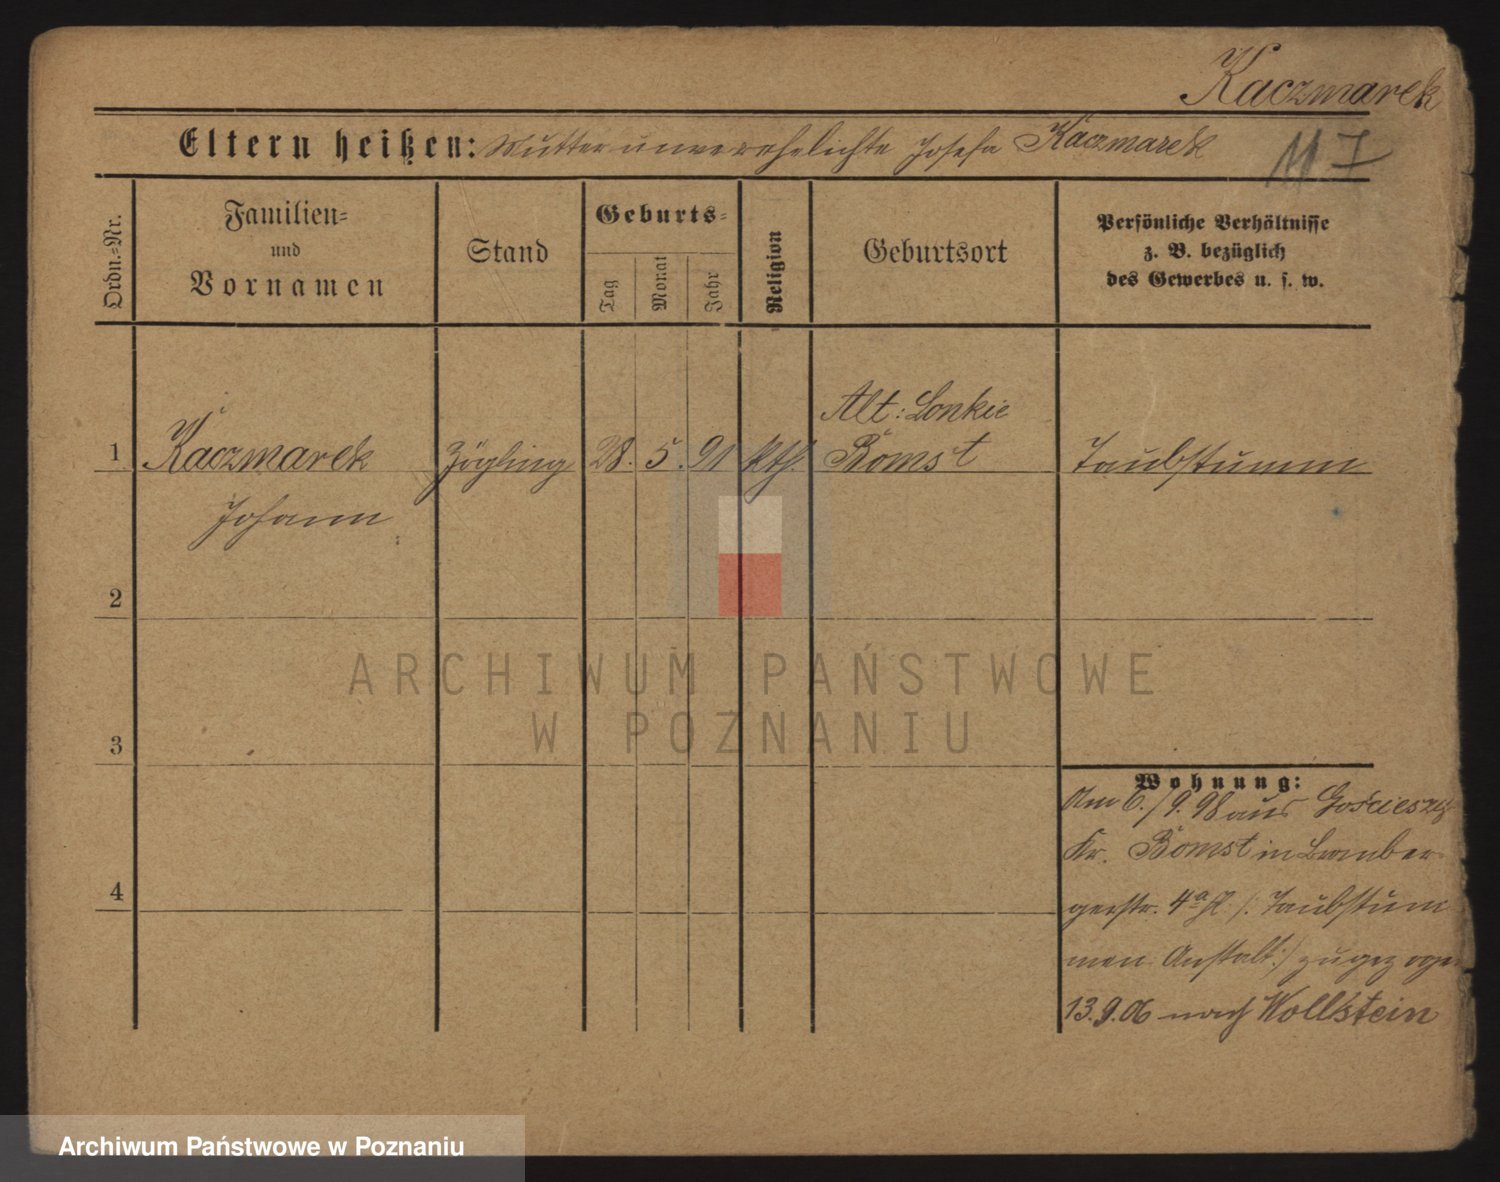 Kaczmarek
Eltern heißen: Mutter unverehelichte Josefa Kaczmarek
Ordn.-Nr.
Familien-
und
Vornamen
Stand
Geburts-
Tag
Monat
Jahr
Religion
Geburtsort
Persönliche Verhältnisse
z. B. bezüglich
des Gewerbes u. s. w.
Alt: Lonkie
1 Kaczmarek Zögling 28. 5. 91 kth. Bomst Taubstumm
Johann
2
ARCHIWUM PAŃSTWOWE
W POZNANIU
3
Wohnung:
Am 6./9.98 aus
Kr. Bomst in Bromber
4
gerstr. 4a /: Taubstum
men Anstalt:/ zugezogen
13.9.06 nach Wollstein
Archiwum Państwowe w Poznaniu